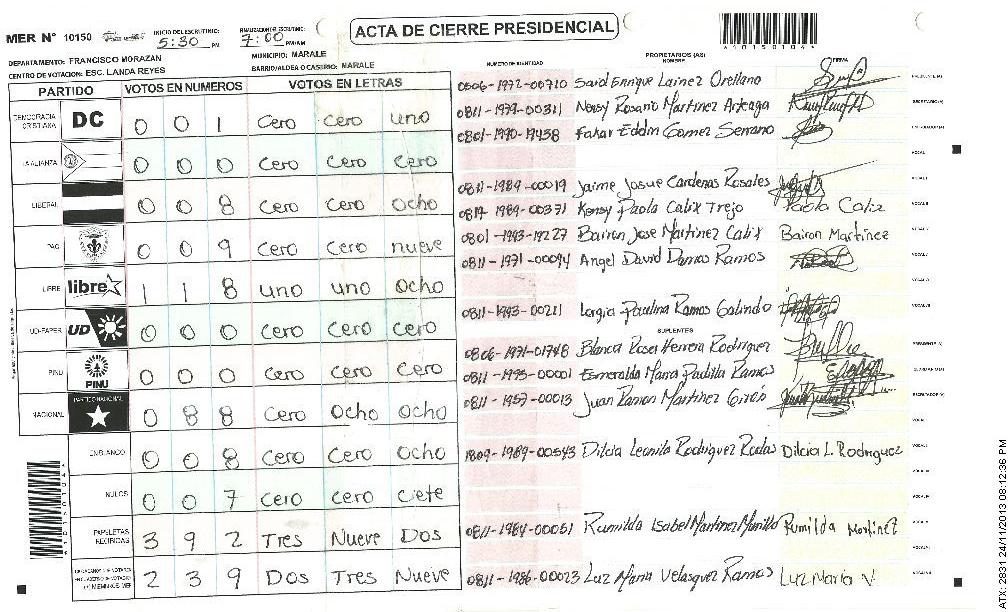 ACTA DE CIERRE PRESIDENCIAL
MER N° 10150
INICIO DEL ESCRUTINIO: 5:30 PM
FINALIZACION ESCRUTINIO: 7:00 PM/AM
DEPARTAMENTO: FRANCISCO MORAZAN
MUNICIPIO: MARALE
CENTRO DE VOTACION: ESC. LANDA REYES
BARRIO/ALDEA O CASERIO: MARALE
PARTIDO VOTOS EN NUMEROS VOTOS EN LETRAS
DEMOCRACIA CRISTIANA DC 0 0 1 Cero Cero uno
LA ALIANZA 0 0 0 Cero Cero Cero
LIBERAL 0 0 8 Cero Cero Ocho
PAC 0 0 9 Cero Cero nueve
LIBRE libre 1 1 8 uno uno Ocho
UD-FAPER UD 0 0 0 Cero Cero Cero
PINU PINU 0 0 0 Cero Cero Cero
NACIONAL PARTIDO NACIONAL 0 8 8 Cero Ocho Ocho
EN BLANCO 0 0 8 Cero Cero Ocho
NULOS 0 0 7 Cero Cero Ciete
PAPELETAS RECIBIDAS 3 9 2 Tres Nueve Dos
2 3 9 Dos Tres Nueve
NUMERO DE IDENTIDAD PROPIETARIOS (AS) NOMBRE FIRMA
0506-1972-00710 Said Enrique Lainez Orellana
0811-1979-00311 Neysy Rosario Martinez Arteaga
0801-1990-19458 Fakar Eddin Gomez Serrano
0811-1989-00019 Jaime Josue Cardenas Rosales
0819-1989-00371 Kensy Paola Calix Trejo Paola Calix
0801-1993-19227 Bairon Jose Martinez Calix Bairon Martinez
0811-1971-00094 Angel David Damas Ramos
0811-1993-00211 Paulina Ramos Galindo
SUPLENTES
0806-1971-01748 Blanca Rosa Herrera Rodriguez
0811-1995-00001 Esmeralda Maria Padilla Ramos
0811-1957-00013 Juan Ramon Martinez Girón
1809-1989-00543 Dilcia Leonila Rodriguez Rodas Dilcia L. Rodriguez
0811-1984-00051 Rumilda Isabel Martinez Murillo Rumilda Martinez
0811-1986-00023 Luz Maria Velasquez Ramos Luz Maria V.
ATX: 2931 24/11/2013 08:12:36 PM